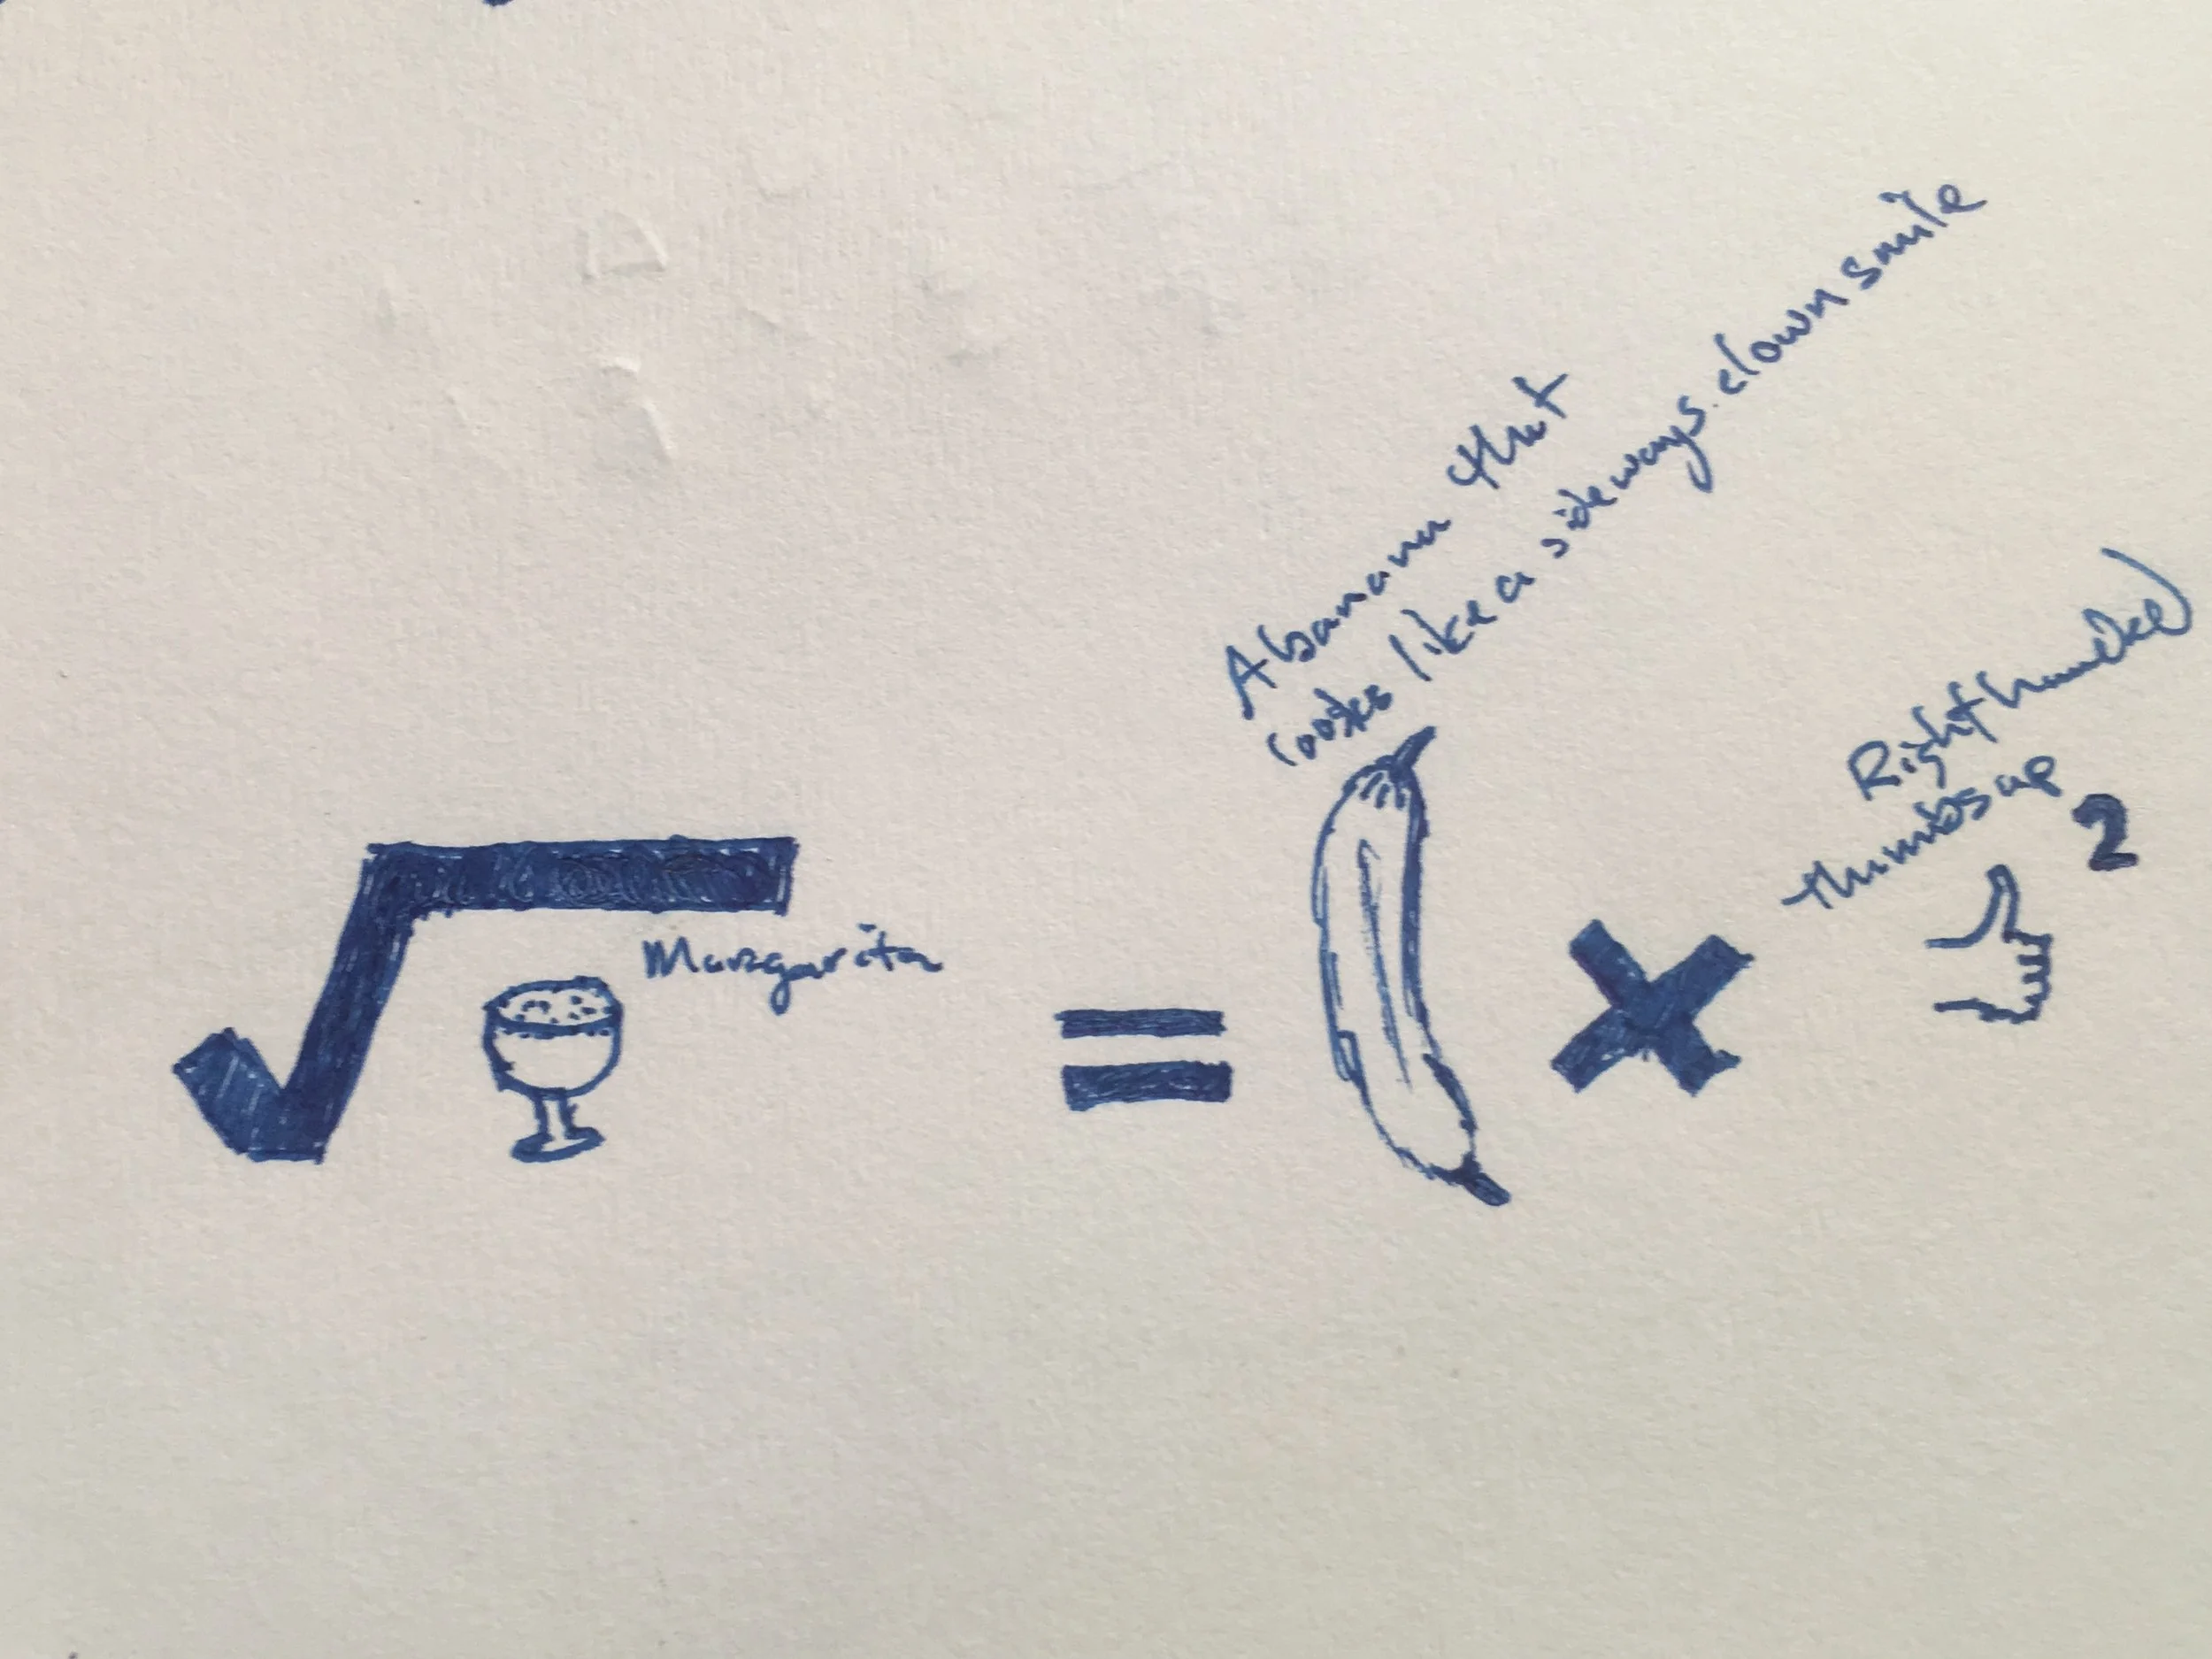 A banana that
looks like a sideways clown smile
Right handed
thumbs up
2
√ Margarita
= ×